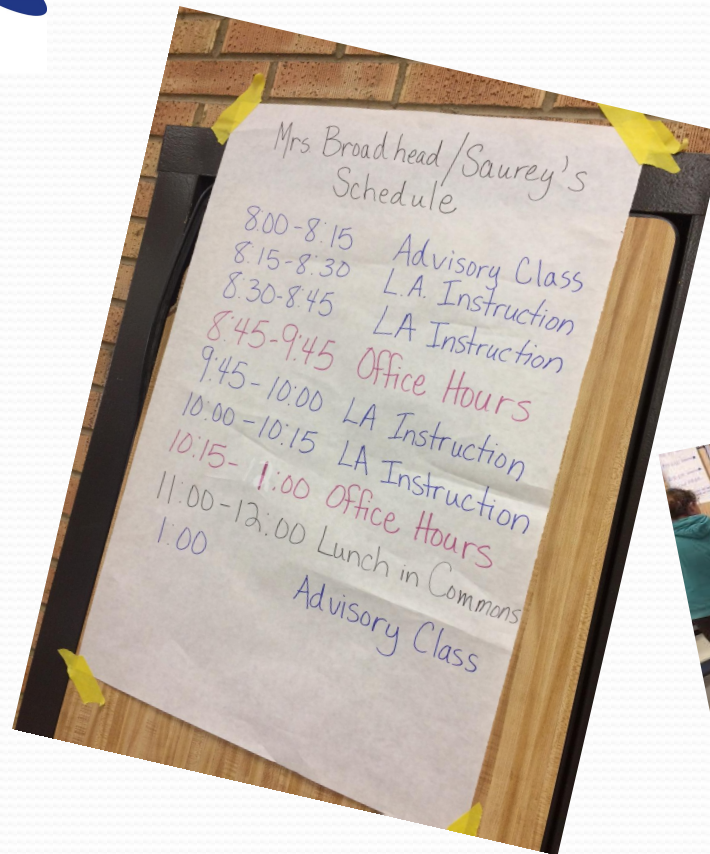 Mrs Broadhead/Saurey's
Schedule
8:00-8:15 Advisory Class
8:15-8:30 L.A. Instruction
8:30-8:45 LA Instruction
8:45-9:45 Office Hours
9:45-10:00 LA Instruction
10:00-10:15 LA Instruction
10:15-1:00 Office Hours
11:00-12:00 Lunch in Commons
1:00 Advisory Class